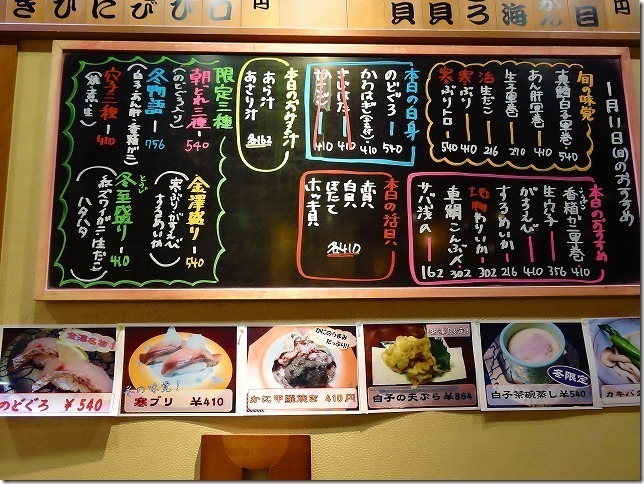 1月11日(日)のおすすめ
旬の味覚
真鱈白子軍巻 540
あん肝軍巻 410
生子軍巻 270
活 生だこ 216
寒 寒ぶり 410
寒 ぶりトロ 540
本日の白身
のどぐろ 540
かわはぎ
410
410
本日のおみそ汁
あら汁
あさり汁
各162
限定三種
朝とれ三種 540
(のどぐろ
冬物語 756
(白子、あん肝、香箱がに)
穴子三種 410
金澤盛り 540
(寒ぶり
がすえび
するめいか)
冬至盛り 410
生だこ
ハタハタ
本日のおすすめ
香箱かに軍巻 410
生ウニ 356
がすえび 410
するめいか 216
地物 302
真鯛こんぶ〆 302
サバ浅〆 162
本日の活貝
赤貝
白貝
ほたて
ホッキ貝
各410
金沢名物
のどぐろ ¥540
冬の味覚!
寒ブリ ¥410
かにのうまみたっぷり!!
かに甲羅焼き 410円
白子の天ぷら ¥864
冬限定
白子茶碗蒸し ¥540